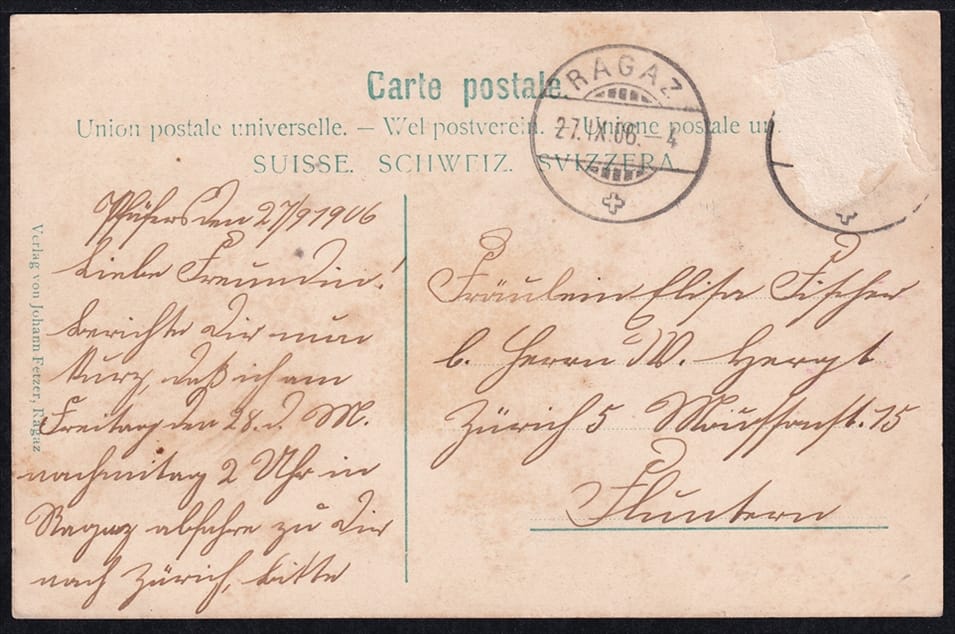 Carte postale.
Union postale universelle. — Weltpostverein. — Unione postale un.
SUISSE. SCHWEIZ. SVIZZERA.
RAGAZ
27.IX.06.–4
Pfäfers den 27/9 1906
Liebe Freundin!
berichte Dir nun
kurz, daß ich am
Freitag den 28. d. M.
nachmitag 2 Uhr in
Ragaz abfahre zu Dir
nach Zürich, bitte
Fräulein Elisa Fischer
b. Herrn W. Hergt
Zürich 5 15
Fluntern
Verlag von Johann Fetzer, Ragaz